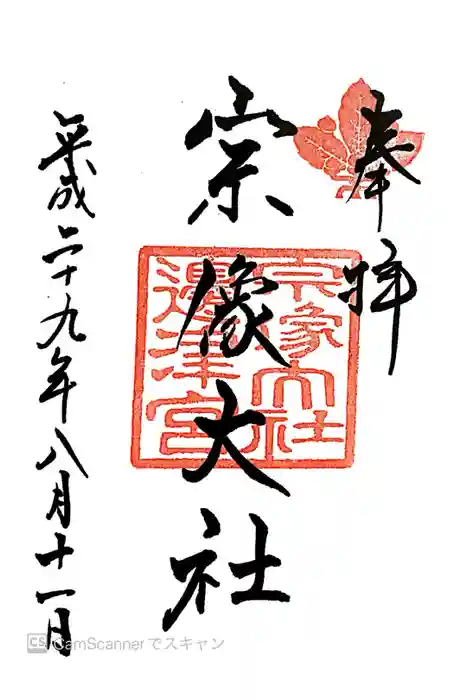 奉拝
宗像大社
宗象大社
邊津宮
平成二十九年八月十一日
CS CamScannerでスキャン